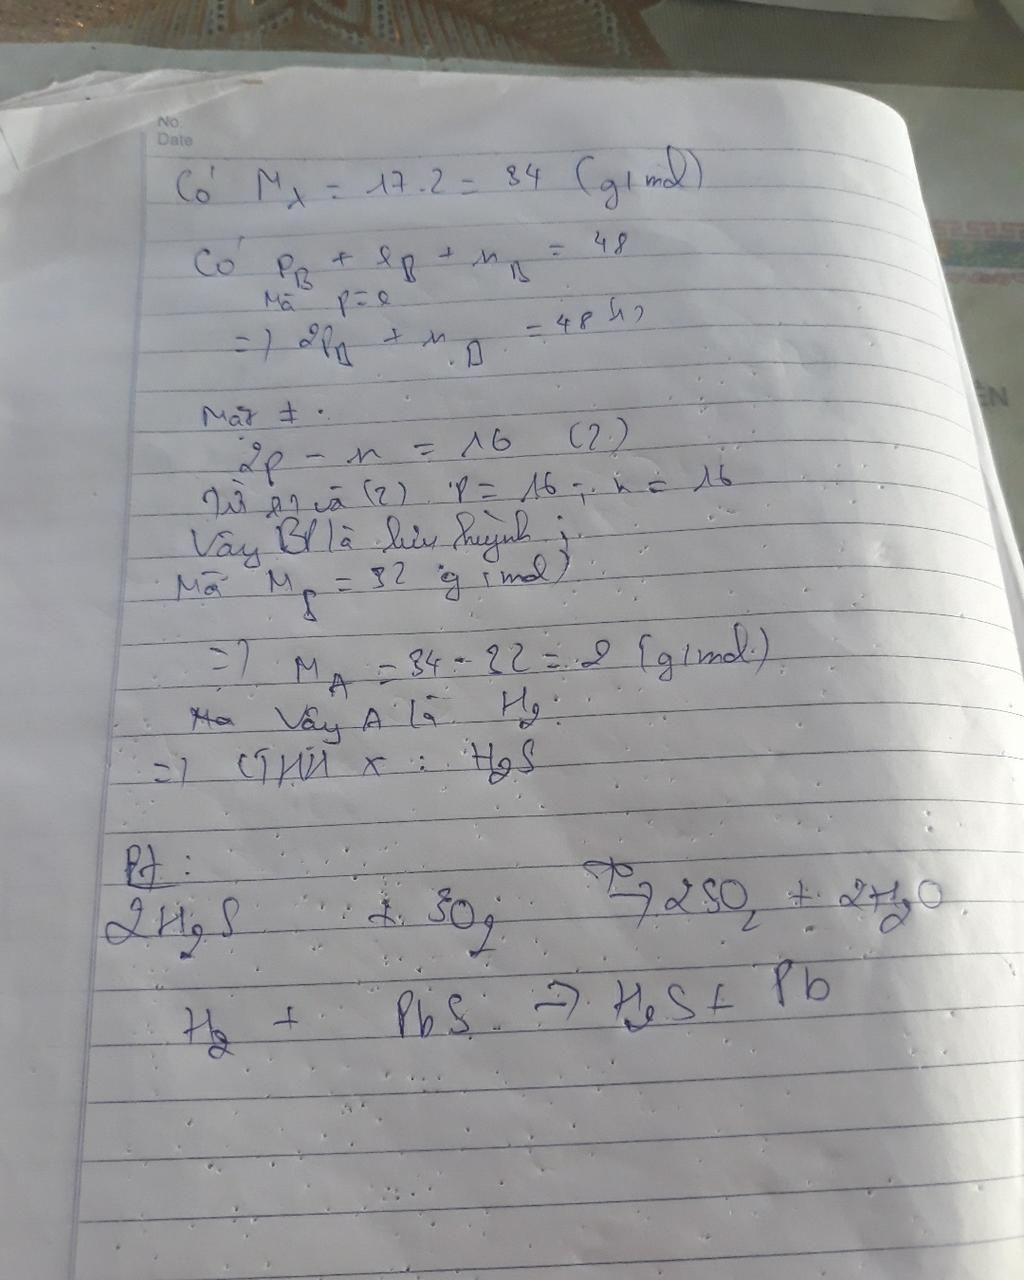 No.
Date
Có M_X = 17.2 = 34 (g/mol)
Có p_B + e_B + n_B = 48
Mà p=e
=) 2p_B + n_B = 48 (1)
Mặt ≠.
2p - n = 16 (2)
Từ (1) và (2) p = 16; n = 16
Vậy B là lưu huỳnh;
Mà M_S = 32 g/mol)
=) M_A = 34 - 32 = 2 (g/mol)
Vậy A là H2.
=) CTHH X : H2S
Pt:
2H2S + 3O2 t° → 2SO2 + 2H2O
H2 + PbS → H2S + Pb